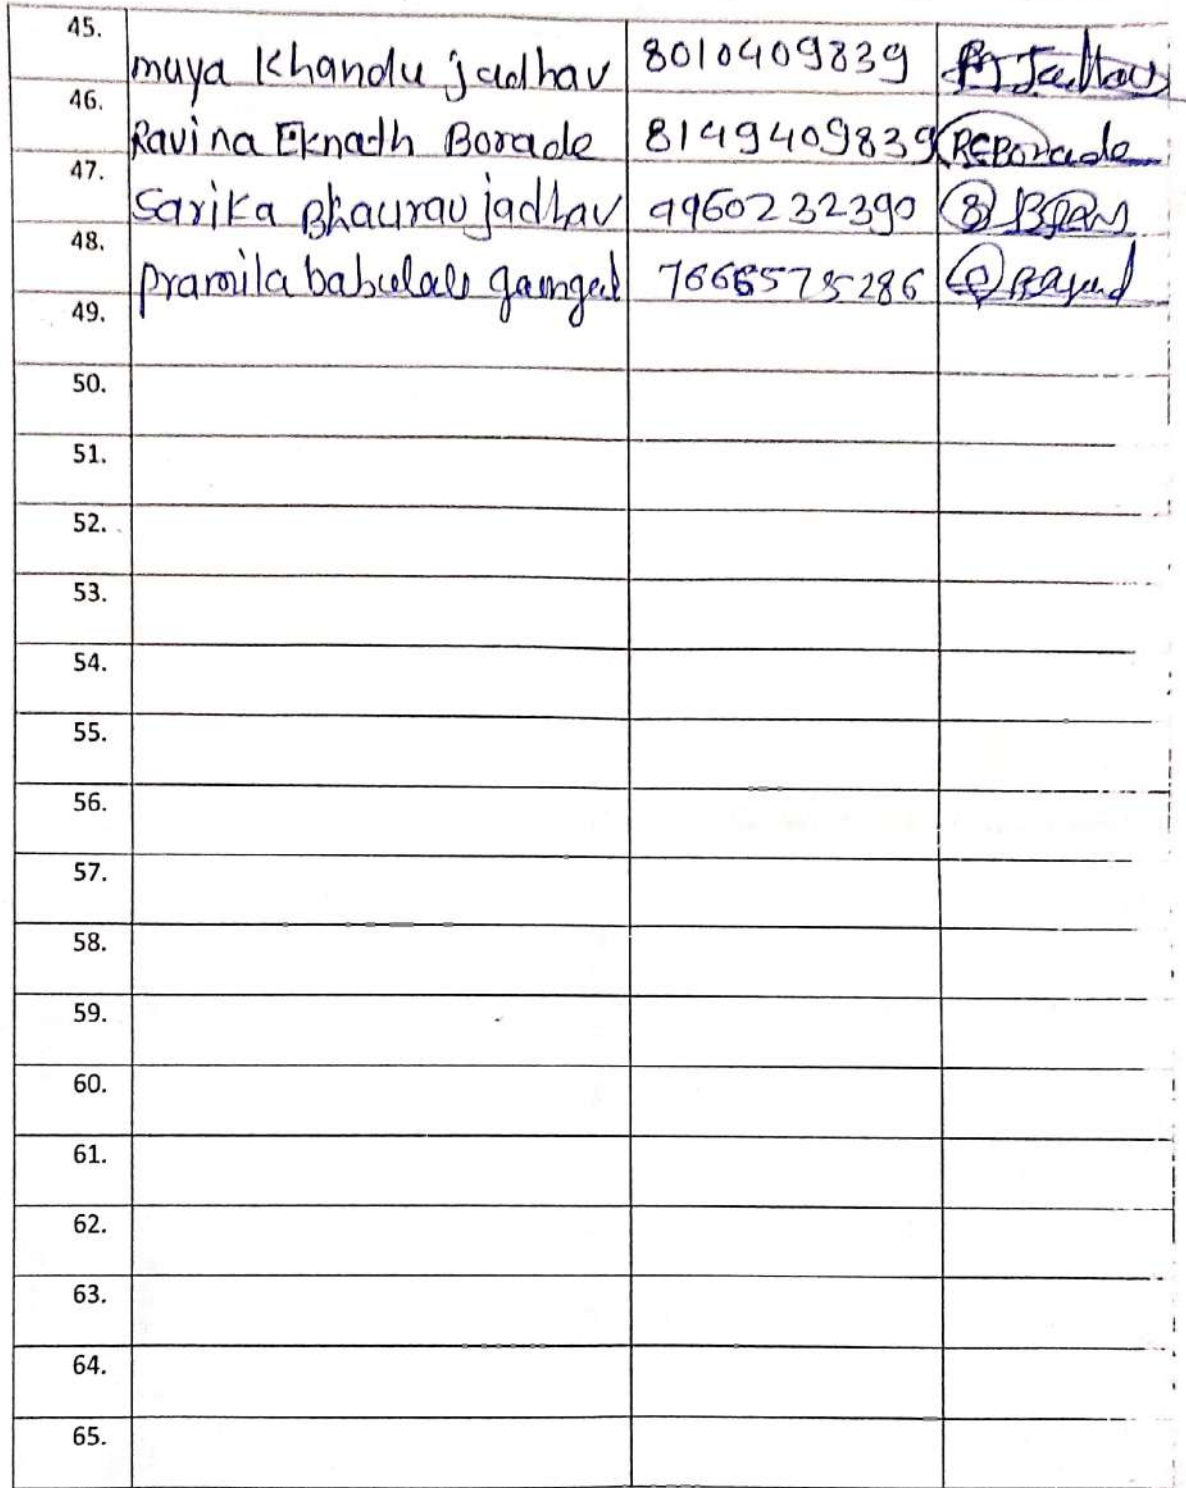 45. muya Khandu jadhav 8010409839 Jadhav
46. Ravina Eknath Borade 8149409839 REBorade
47. Sarika Bhaurav jadhav 9960232390
48. pramila babulal 7666575286
49.
50.
51.
52.
53.
54.
55.
56.
57.
58.
59.
60.
61.
62.
63.
64.
65.